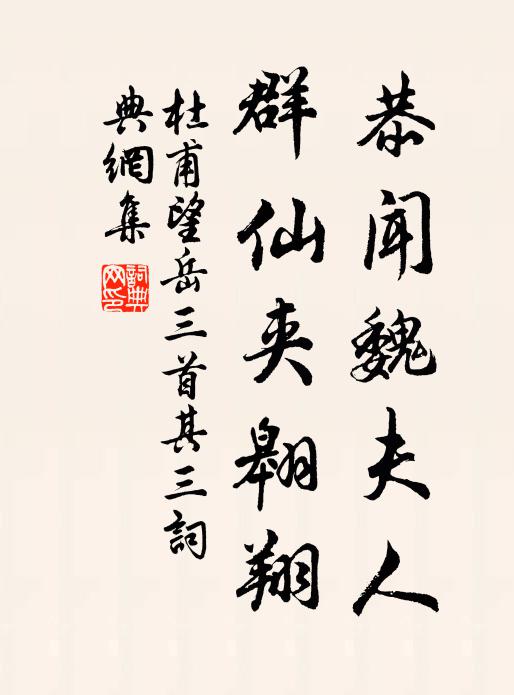 恭聞魏夫人
群仙夾翱翔
杜甫望岳三首其三詞
典網集
詞典
网印